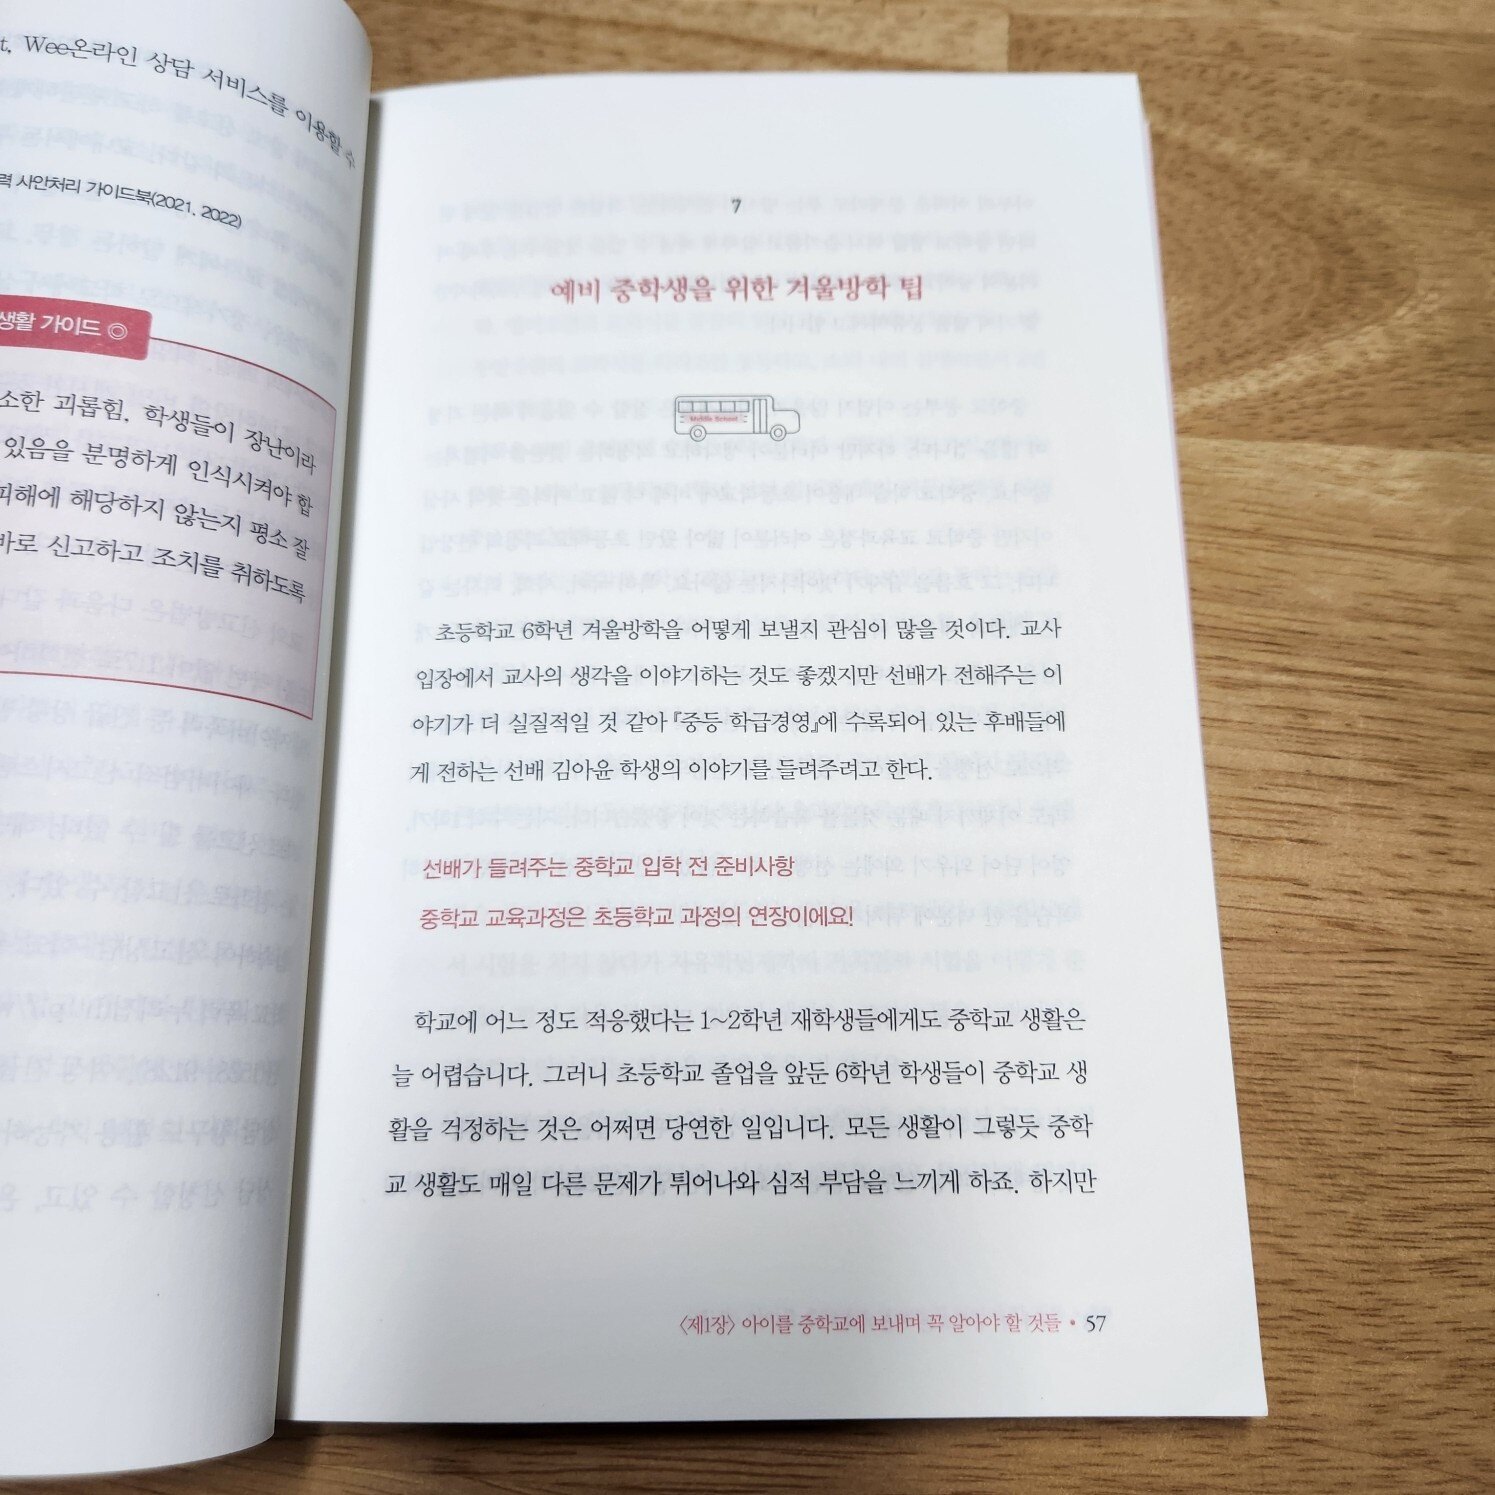 t, Wee온라인 상담 서비스를 이용할 수
력 사안처리 가이드북(2021, 2022)
생활 가이드 ◎
소한 괴롭힘. 학생들이 장난이라
있음을 분명하게 인식시켜야 합
피해에 해당하지 않는지 평소 잘
바로 신고하고 조치를 취하도록
7
예비 중학생을 위한 겨울방학 팁
Middle School
초등학교 6학년 겨울방학을 어떻게 보낼지 관심이 많을 것이다. 교사
입장에서 교사의 생각을 이야기하는 것도 좋겠지만 선배가 전해주는 이
야기가 더 실질적일 것 같아 『중등 학급경영』에 수록되어 있는 후배들에
게 전하는 선배 김아윤 학생의 이야기를 들려주려고 한다.
선배가 들려주는 중학교 입학 전 준비사항
중학교 교육과정은 초등학교 과정의 연장이에요!
학교에 어느 정도 적응했다는 1~2학년 재학생들에게도 중학교 생활은
늘 어렵습니다. 그러니 초등학교 졸업을 앞둔 6학년 학생들이 중학교 생
활을 걱정하는 것은 어쩌면 당연한 일입니다. 모든 생활이 그렇듯 중학
교 생활도 매일 다른 문제가 튀어나와 심적 부담을 느끼게 하죠. 하지만
〈제1장〉 아이를 중학교에 보내며 꼭 알아야 할 것들 • 57